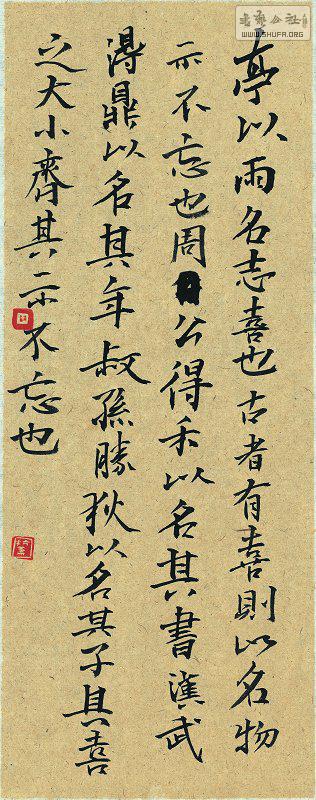 亭以雨名志喜也古者有喜則以名物
示不忘也周公得禾以名其書漢武
得鼎以名其年叔孫勝狄以名其子其喜
之大小齊其示不忘也
书艺公社
WWW.SHUFA.ORG